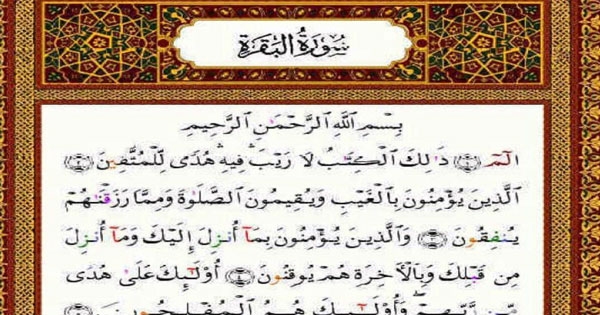 سُورَةُ الْبَقَرَةِ
بِسْمِ اللَّهِ الرَّحْمَٰنِ الرَّحِيمِ
الٓمٓ ۝١ ذَٰلِكَ الْكِتَٰبُ لَا رَيْبَ ۛ فِيهِ ۛ هُدًى لِّلْمُتَّقِينَ ۝٢
الَّذِينَ يُؤْمِنُونَ بِالْغَيْبِ وَيُقِيمُونَ الصَّلَوٰةَ وَمِمَّا رَزَقْنَٰهُمْ
يُنفِقُونَ ۝٣ وَالَّذِينَ يُؤْمِنُونَ بِمَآ أُنزِلَ إِلَيْكَ وَمَآ أُنزِلَ
مِن قَبْلِكَ وَبِالْأَخِرَةِ هُمْ يُوقِنُونَ ۝٤ أُوْلَٰٓئِكَ عَلَىٰ هُدًى
مِّن رَّبِّهِمْ ۖ وَأُوْلَٰٓئِكَ هُمُ الْمُفْلِحُونَ